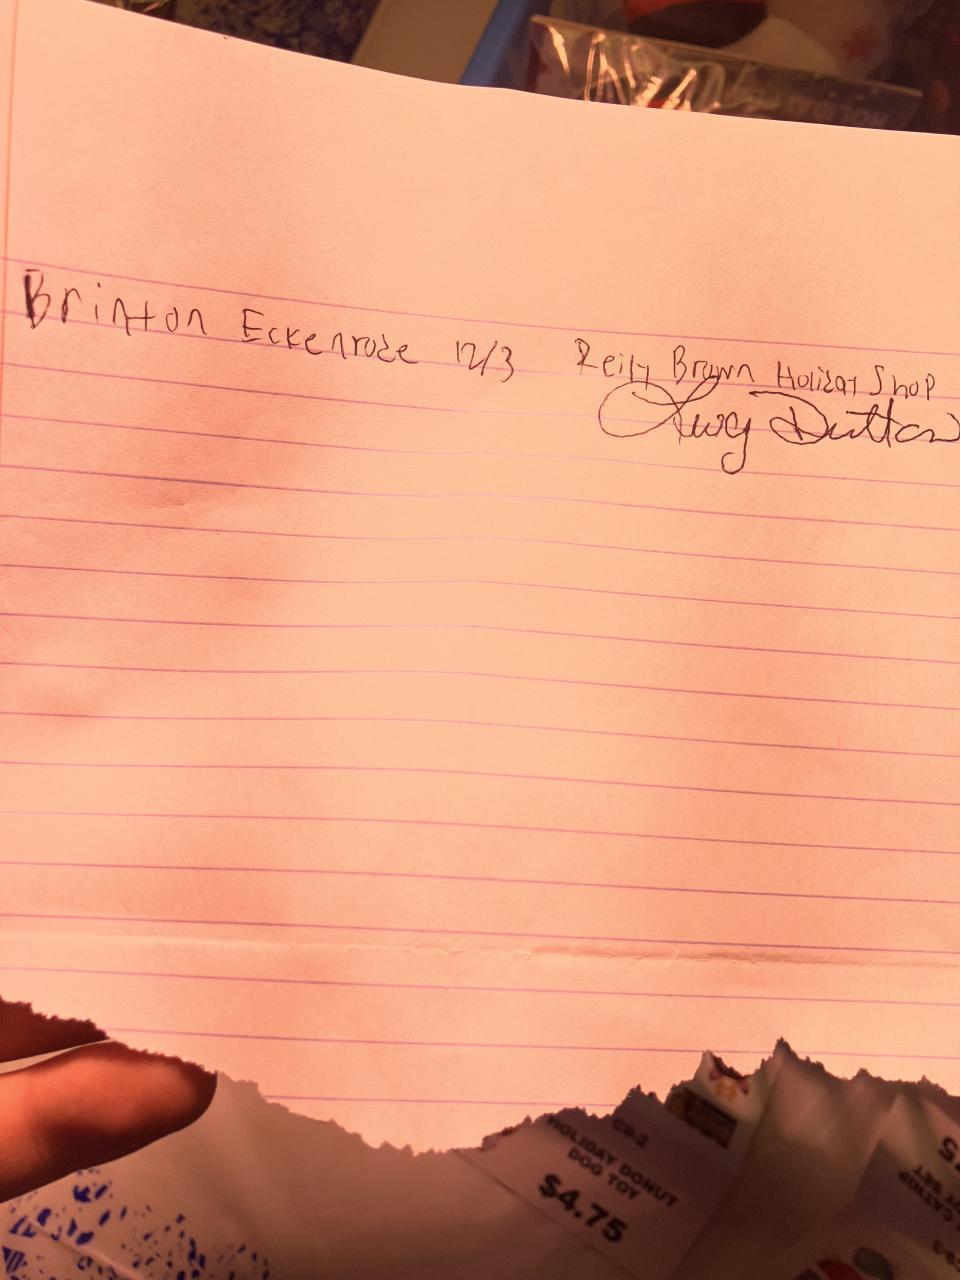 Brinton Eckenrode 12/3 Reily Brown Holiday Shop
Dutton
C9-2
HOLIDAY DONUT
DOG TOY
$4.75
SET